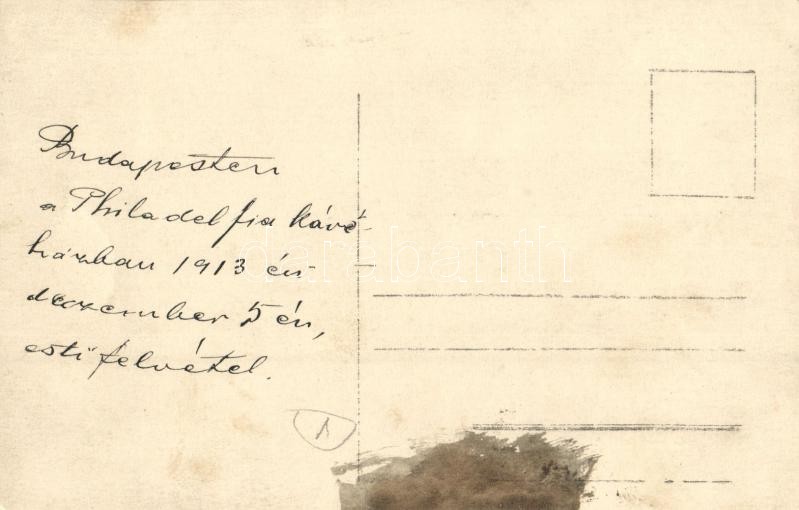 Budapesten
a Philadelfia kávé-
házban 1913 én
deczember 5 én,
esti felvétel.
darabanth